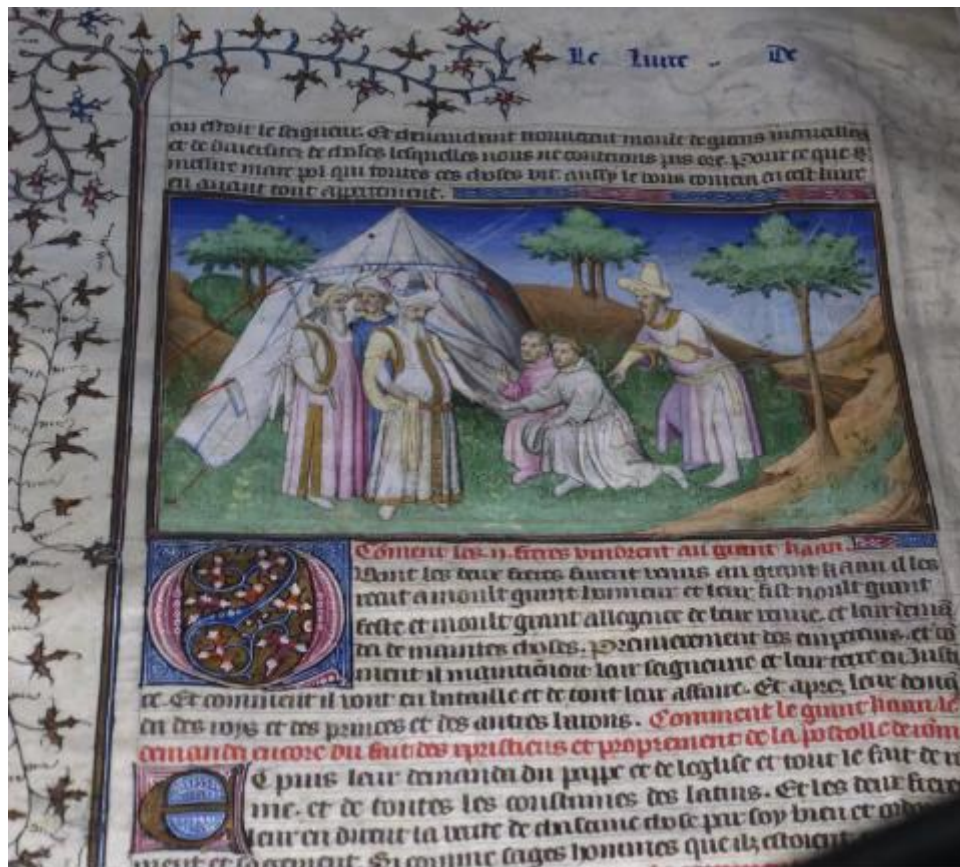 Le liure De
ou estoit le seigneur. Et cheuauchant trouuerent moult de grans merueilles
et de diuersitez de choses lesquelles nous ne conterons pas ore. Pour ce que
messire marc pol qui toutes ces choses vit. aussy le vous contera en cest liure
en auant tout appertement.
Coment les .ii. freres vindrent au grant kaan.
Quant les deux freres furent venus au grant kaan il les
recut a moult grant honneur et leur fist moult grant
feste et moult grant allegance de leur venue. et leur demã
da de maintes choses. Premierement des empereurs. et cõ
ment il maintiennent leur seigneurie et leur terre en Justi
ce. Et comment il vont en bataille et de tout leur affaire. Et apres leur demã
da des roys et des princes et des autres barons. Comment le grant kaan le
demanda encore du fait des cristiens et proprement de la postolle de rõm
Et puis leur demanda du pappe et de leglise et tout le fait de
me. et de toutes les coustumes des latins. Et les deux freres
leur en dirent la verite de chascune chose par soy bien et
ment et sagement. Si comme sages hommes que ilz estoient